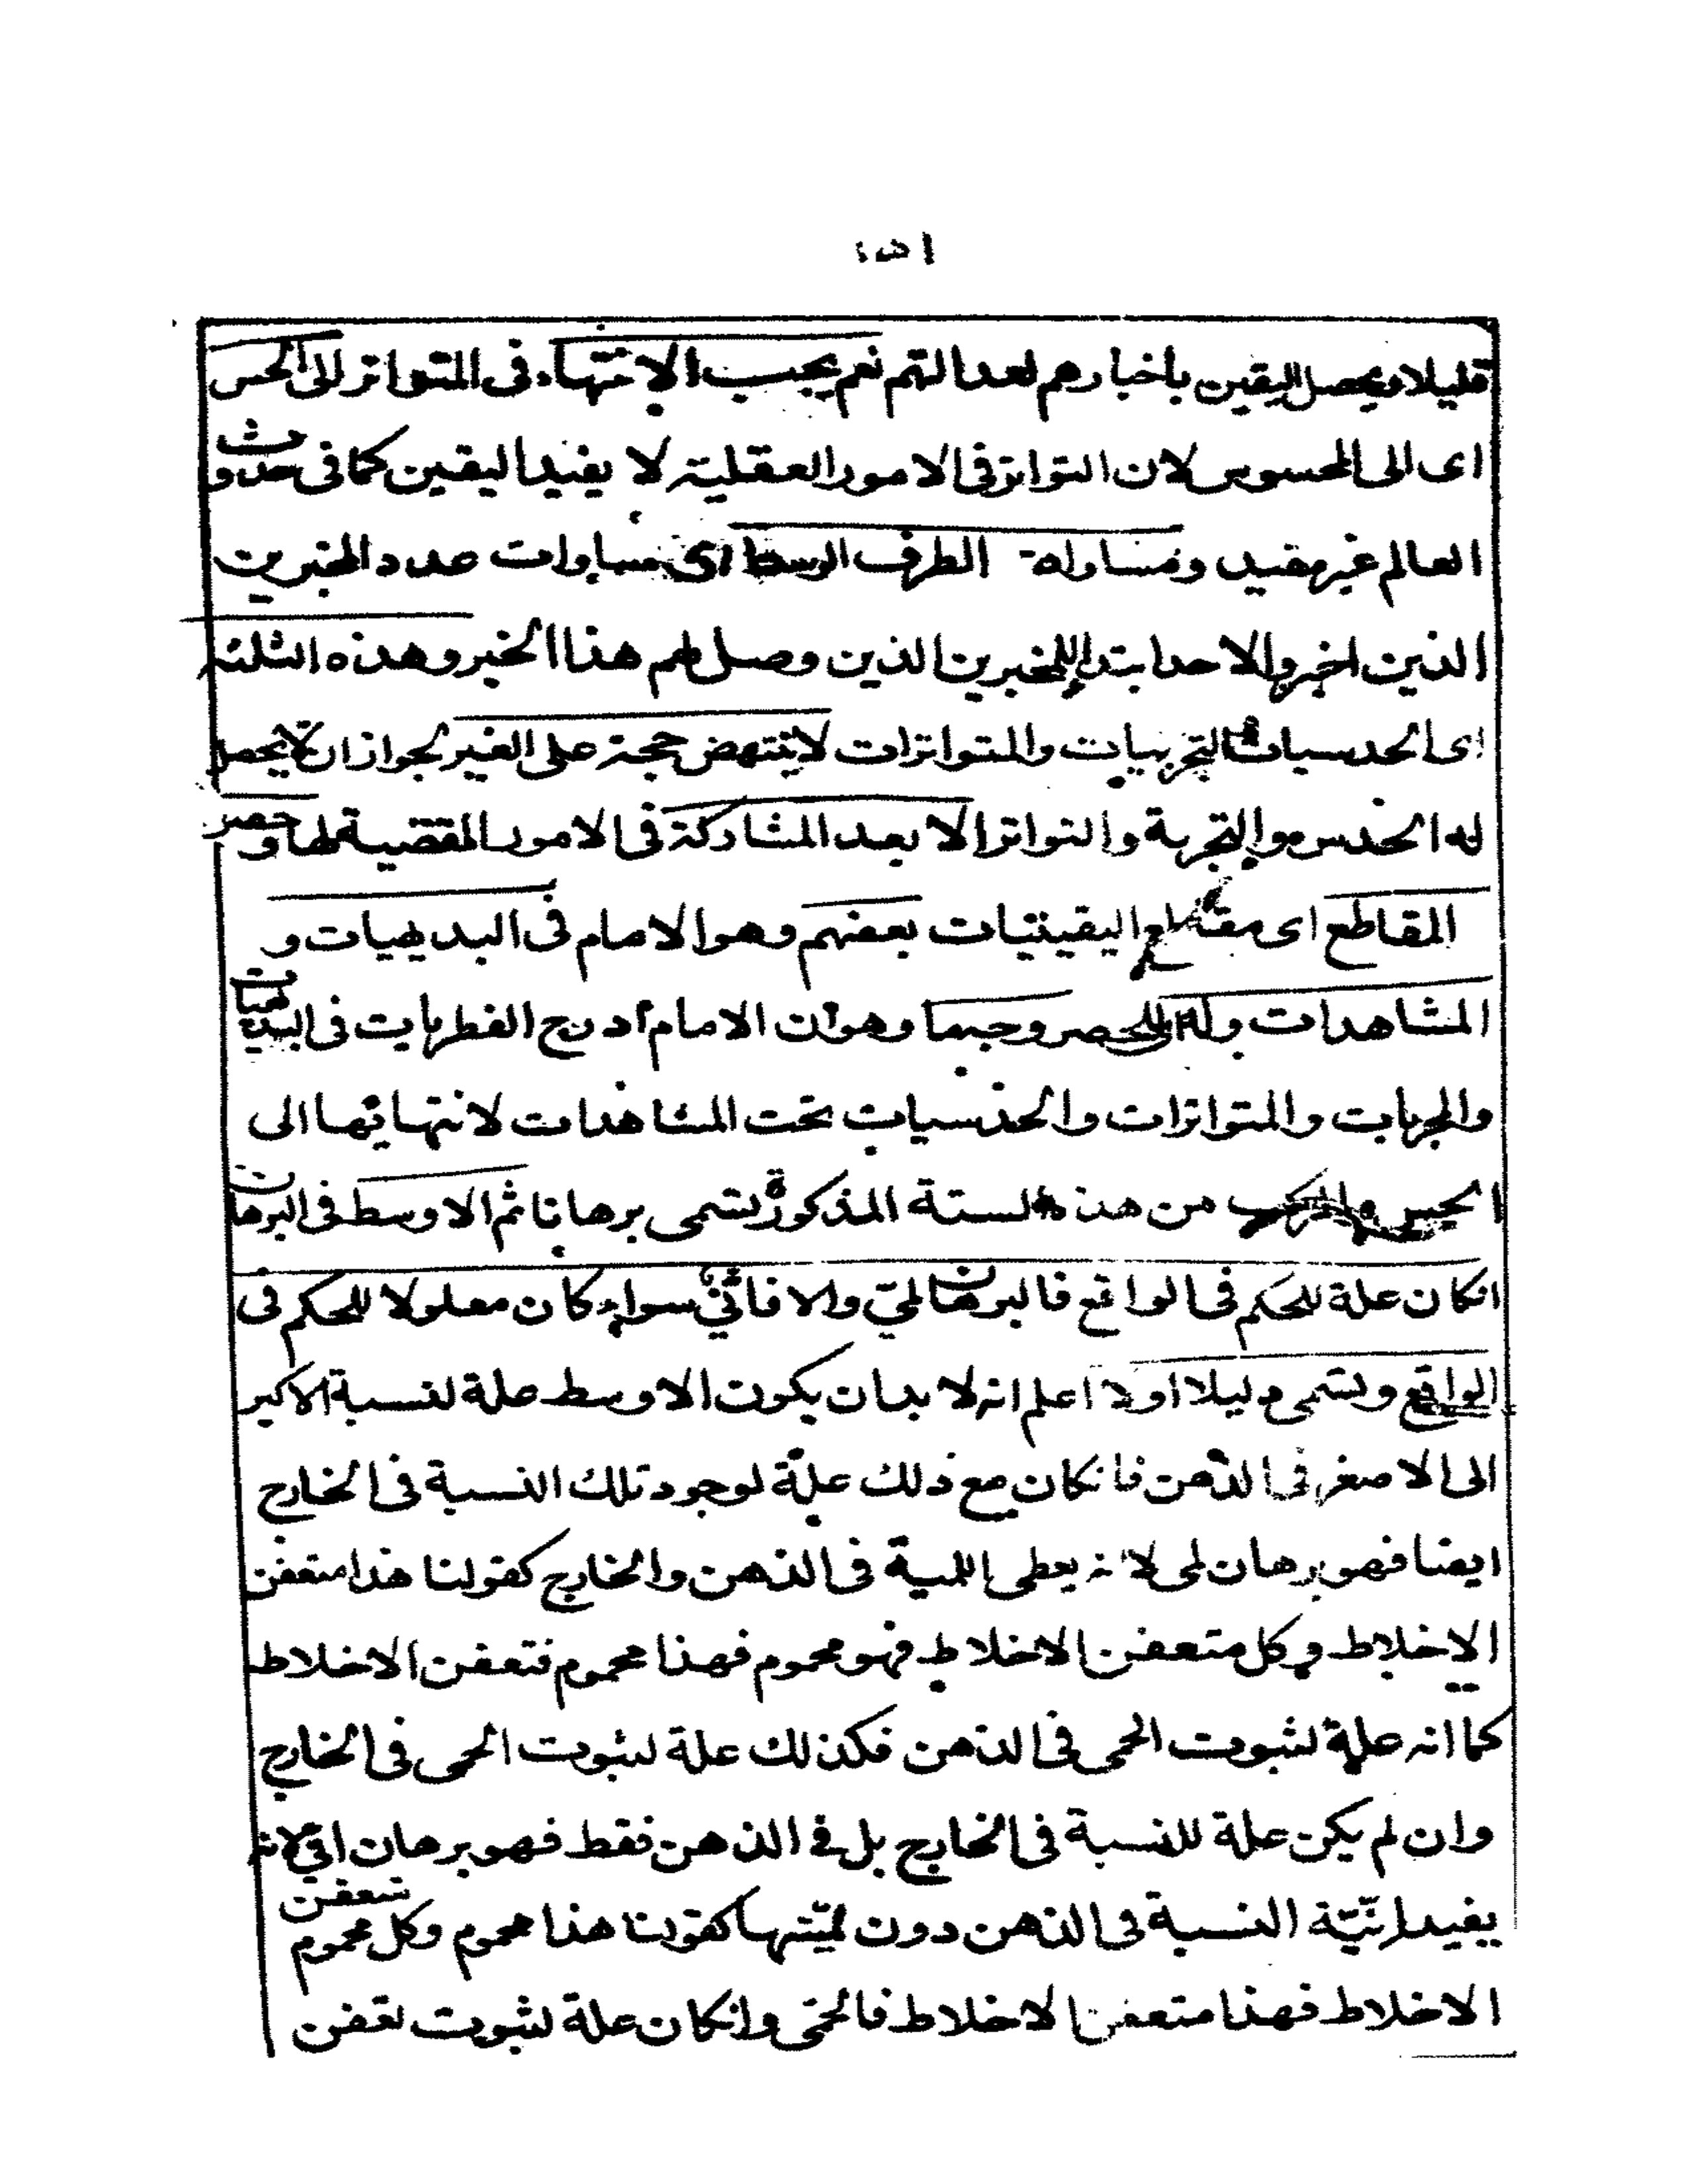 قليلا ويحصل اليقين باخبارهم لعدالتهم نعم يجب الانتهاء فى المتواتر الى الحس
اى الى المحسوس لان التواتر فى الامور العقلية لا يفيد اليقين كما فى حدوث
العالم غير مفيد ومساواة الطرف الوسط اى مساوات عدد المخبرين
الذين اخبروا الاحد ابتداء للمخبرين الذين وصل لهم هذا الخبر وهذه الثلثه
اى الحدسيات والتجربيات والمتواترات لا ينتهض حجة على الغير لجواز ان لا يحصل
له الحدس والتجربة والتواتر الا بعد المشاركة فى الامور المقتضية لها وحصر
المقاطع اى مقاطع اليقينيات بعضهم وهو الامام فى البديهيات و
المشاهدات وله وجه ما وهو ان الامام أدرج الفطريات فى البديهيات
والمجربات والمتواترات والحدسيات تحت المشاهدات لانتهائها الى
الحس والمركب من هذه الستة المذكورة يسمى برهانا ثم الاوسط فى البرهان
انكان علة للحكم فى الواقع فالبرهان لميّ والا فانّيّ سواء كان معلولا للحكم فى
الواقع ويسمى دليلا اولا اعلم انه لا بد ان يكون الاوسط علة لنسبة الاكبر
الى الاصغر فى الذهن فانكان مع ذلك علة لوجود تلك النسبة فى الخارج
ايضا فهو برهان لمى لانه يعطى اللمية فى الذهن والخارج كقولنا هذا متعفن
الاخلاط وكل متعفن الاخلاط فهو محموم فهذا محموم فتعفن الاخلاط
كما انه علة لثبوت الحمى فى الذهن فكذلك علة لثبوت الحمى فى الخارج
وان لم يكن علة للنسبة فى الخارج بل فى الذهن فقط فهو برهان انّي لانه
يفيد انّيّة النسبة فى الذهن دون لميّتها كقولنا هذا محموم وكل محموم متعفن
الاخلاط فهذا متعفن الاخلاط فالحمى وانكان علة لثبوت تعفن